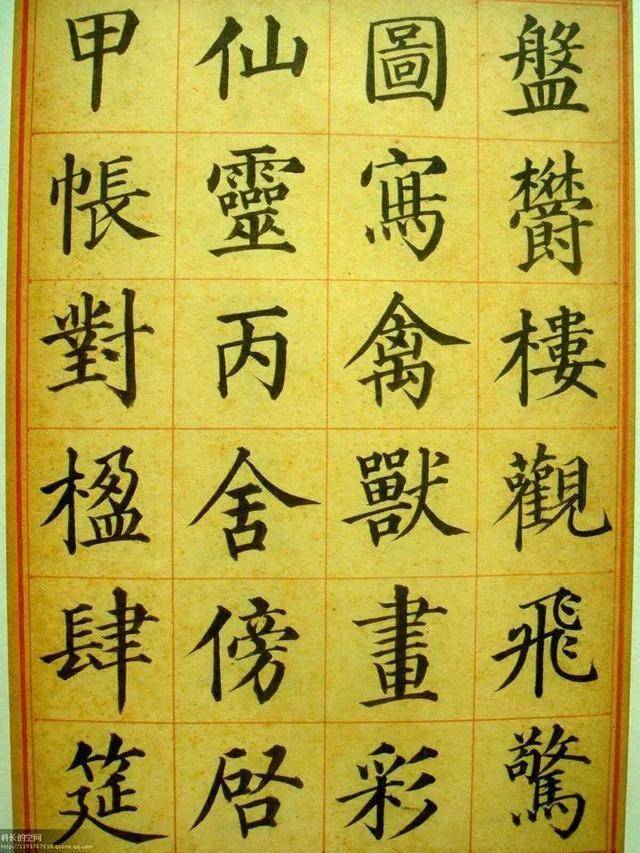 盤欎樓觀飛驚
圖寫禽獸畫彩
仙靈丙舍傍啟
甲帳對楹肆筵
科长的空间
http://1193767618.qzone.qq.com